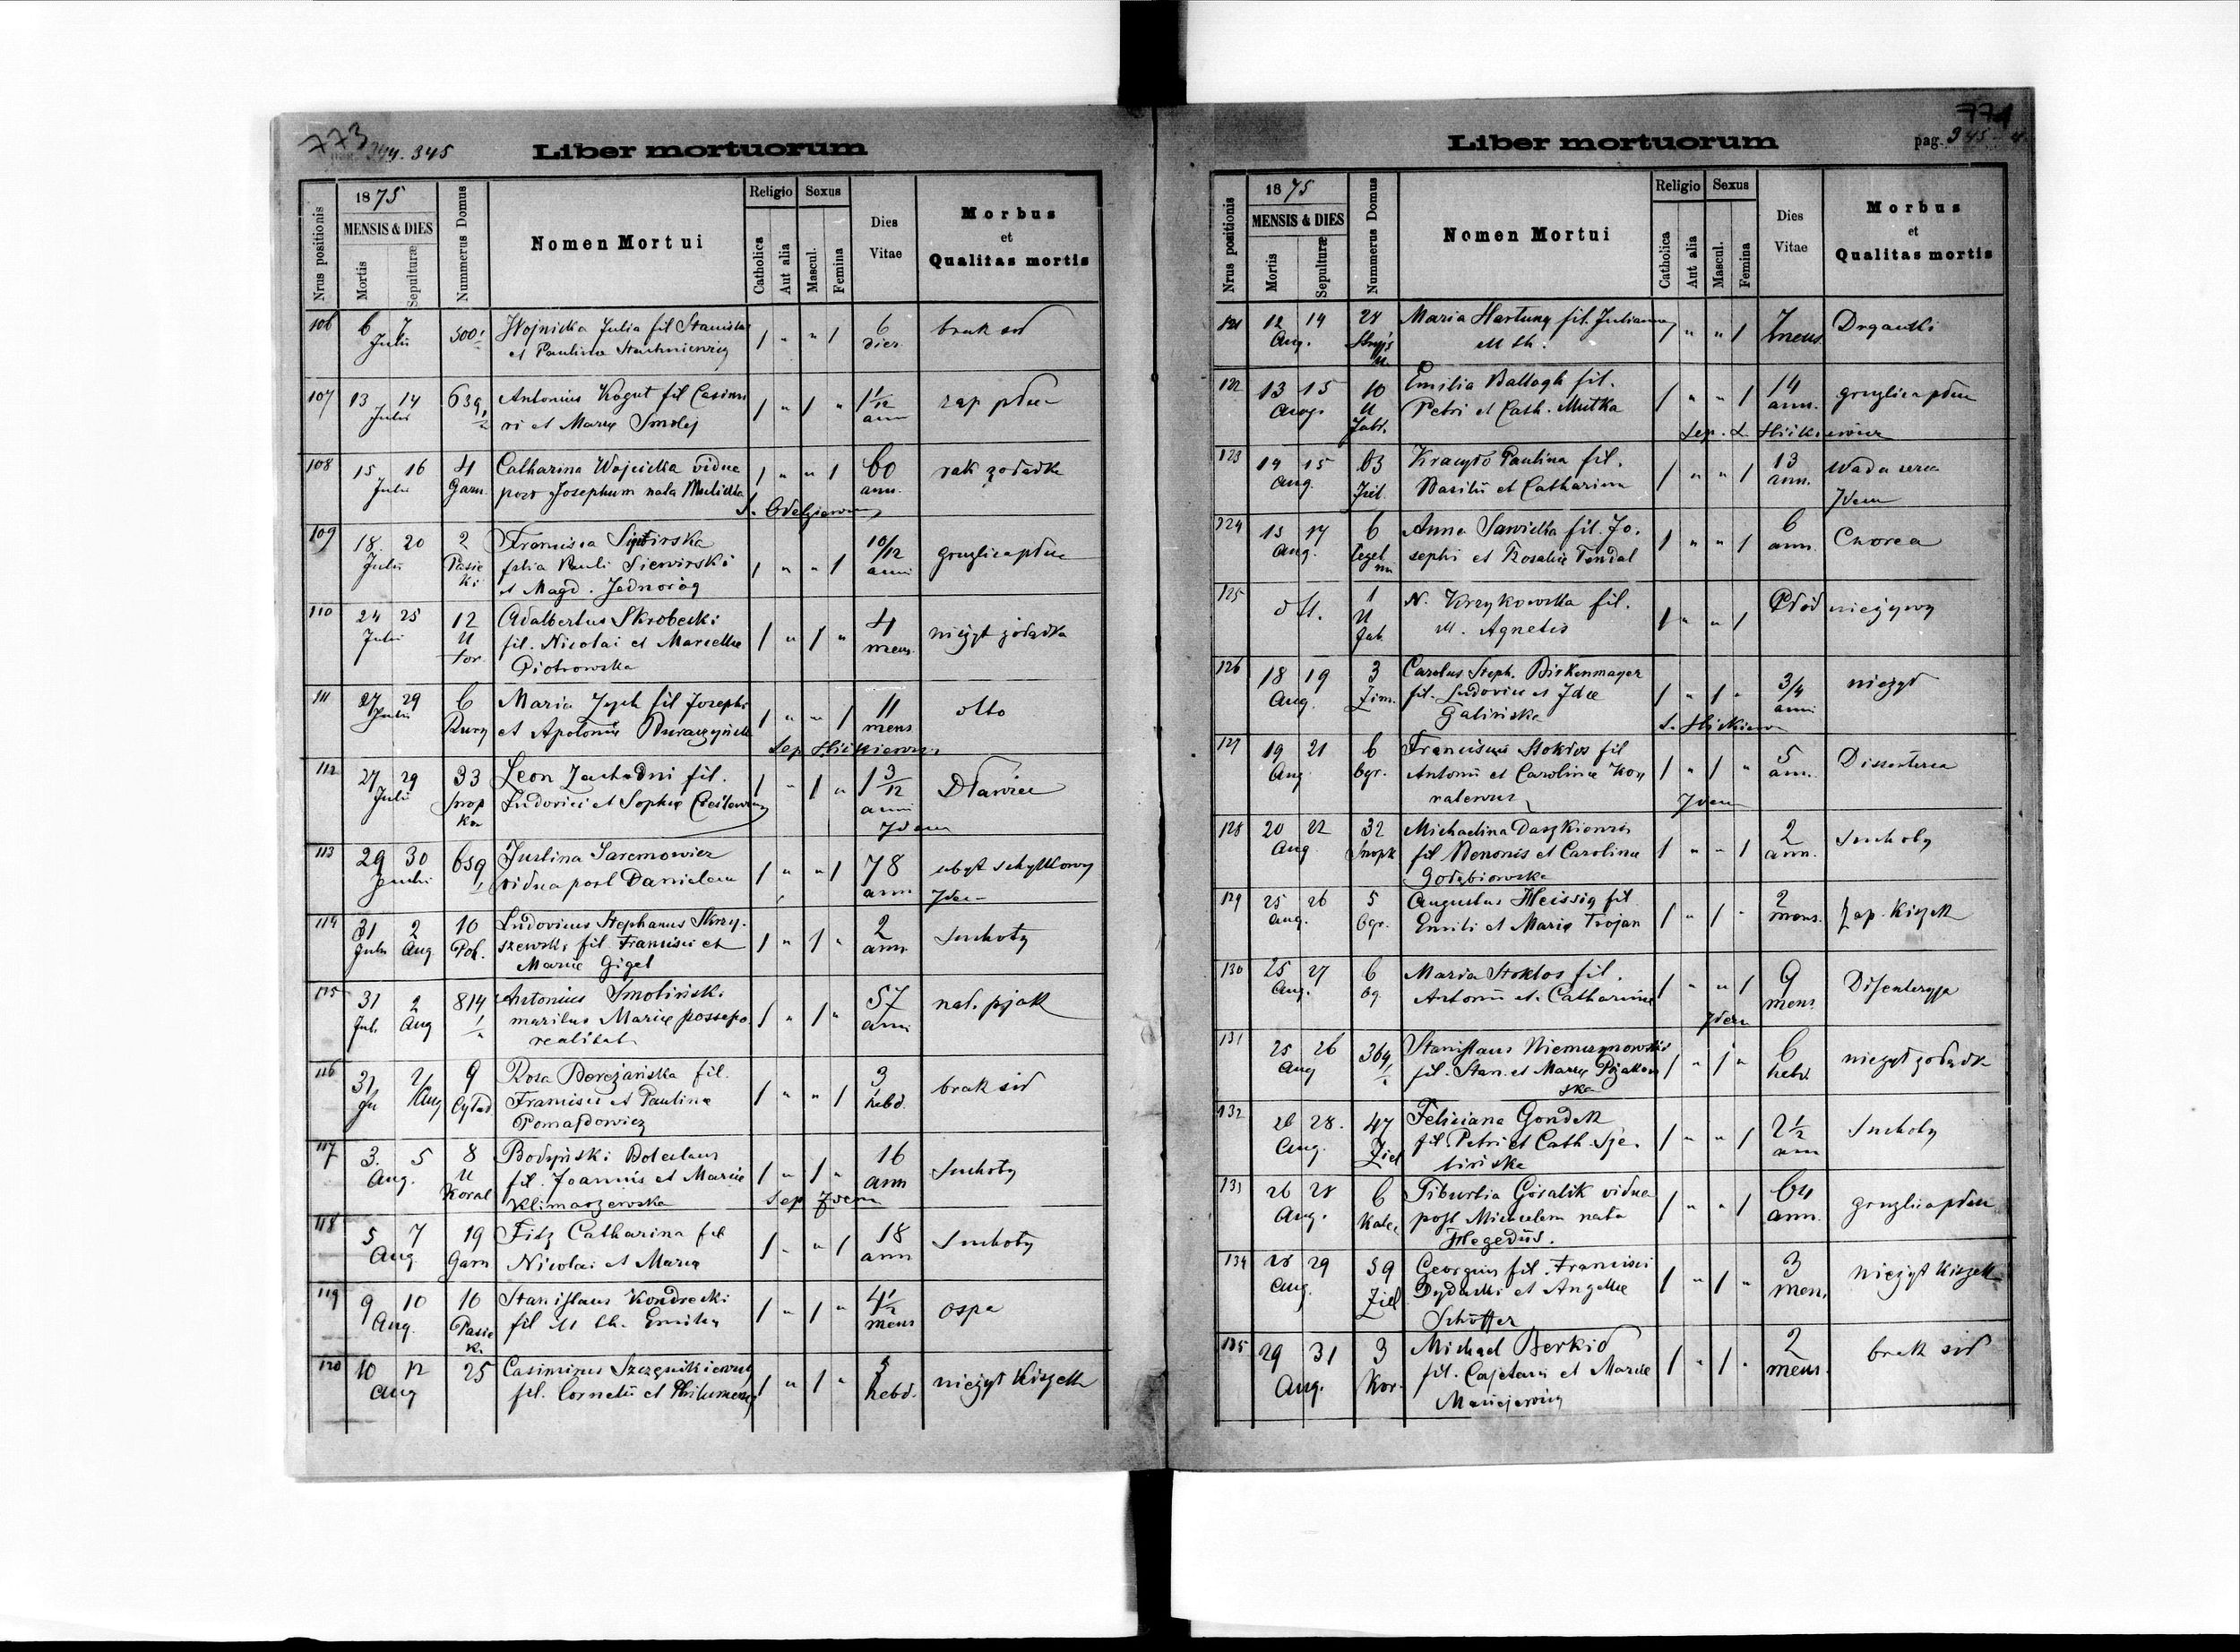 773
pag. 344. 345
Liber mortuorum
Nrus positionis
1875
MENSIS & DIES
Mortis
Sepulturæ
Nummerus Domus
Nomen Mortui
Religio
Catholica
Aut alia
Sexus
Mascul.
Femina
Dies
Vitae
Morbus
et
Qualitas mortis
106 6 7 500 1/ Wojnicka Julia fil Stanislai 1 " " 1 6 brak sił
Julii et Paulina Stachniewicz dier.
107 13 14 639 1/2 Antonius Kogut fil Casimi 1 " 1 " 1 1/12 zap płuc
Julii ri et Mariæ Smolej ann
108 15 16 4 Catharina Wojcicka vidua 1 " " 1 60 rak żołądka
Julii Garn. post Josephum nata ann.
S.
109 18 20 2 Francisca 1 " " 1 10/12 gruzlica płuc
Julii Pasie filia Pauli Siewirski anni
ki et Magd. Jednoróg
110 24 25 12 Adalbertus Skrobecki 1 " 1 " 4 nieżyt żołądka
Julii U fil. Nicolai et Marcella mens
Tor. Piotrowska
111 27 29 6 Maria Zych fil Josephi 1 " " 1 11 otto
Julii Bury et Apolonia mens
Sep Hickiewicz
112 27 29 33 Leon Zachodni fil. 1 " 1 " 1 3/12 Dławiec
Julii Snop Ludovici et Sophiæ anni
ka Idem
113 29 30 659 Justina Saremowicz 1 " " 1 78 ubyt schyłkowy
Julii 1/ vidua post Danielem ann Idem
114 31 2 10 Ludovicus Stephanus Skrzy- 1 " 1 " 2 Suchoty
Julii Aug Poh. szewski fil Francisci et ann
Mariæ Gigel
115 31 2 814 Antonius Smoliński 1 " 1 " 57 nał. pjak
Jul. Aug 1/ maritus Mariæ possesso anni
realitat
116 31 2 9 Rosa Bereżańska fil. 1 " " 1 3 brak sił
Ju Aug Cytad Francisci et Paulina hebd.
Pomazdowicz
117 3. 5 8 Bodyński Boleslaus 1 " 1 " 16 Suchoty
Aug. U fil. Joannis et Mariæ ann
Koral Klimaszewska Sep Idem
118 5 7 19 Fitz Catharina fil 1 " " 1 18 Suchoty
Aug Garn Nicolai et Maria ann
119 9 10 10 Stanislaus Kondrecki 1 " 1 " 4 1/2 ospa
Aug. Pasie fil M th. Emilia mens
k.
120 10 12 25 Casimirus 1 " 1 " 5 nieżyt Kiszek
Aug fil. Cornelii et Philumena hebd.
774
pag. 345
Liber mortuorum
Nrus positionis
1875
MENSIS & DIES
Mortis
Sepulturæ
Nummerus Domus
Nomen Mortui
Religio
Catholica
Aut alia
Sexus
Mascul.
Femina
Dies
Vitae
Morbus
et
Qualitas mortis
121 12 14 28 Maria Hartung fil. Julianna 1 " " 1 7 mens Drgawki
Aug. Stryjs M th.
122 13 15 10 Emilia Ballagh fil. 1 " " 1 14 gruzlica płuc
Aug. U Petri et Cath. Mutka ann.
Jabł. Sep. L. Hickiewicz
123 14 15 63 Kracyło Paulina fil. 1 " " 1 13 Wada serca
Aug. Ziel. Basilii et Catharina ann. Idem
124 15 17 6 Anna Sawicka fil. Jo- 1 " " 1 6 Chorea
Aug. Cegel sephi et Rosaliæ Tendal ann.
125 dtt. 1 N. Krzykowska fil. 1 " " 1 Płód nieżywy
U M. Agnetis
Jab.
126 18 19 3 Carolus Steph. Birkenmayer 1 " 1 " 3/4 nieżyt
Aug. Zim. fil. Ludovici et Idæ anni
Galińska S. Hickiew
127 19 21 6 Franciscus Stokłos fil 1 " 1 " 5 Dissenteria
Aug Ogr. Antonii et Carolina Kor ann.
Idem
128 20 22 32 Michaelina Daszkiewicz 1 " " 1 2 Suchoty
Aug Snopk fil Benonis et Carolina ann.
Gołąbiowska
129 25 26 5 Augustus Heissig fil 1 " 1 " 2 Zap. Kiszek
Aug. Ogr. Emili et Mariæ Trojan mens.
130 25 27 6 Maria Stoklos fil. 1 " " 1 9 Disenterya
Aug. Og. Antonii et Catharinæ mens.
Idem
131 25 26 369 Stanislaus 1 " 1 " 6 nieżyt żołądk
Aug 1/ fil. Stan. et Mariæ hebd.
ska
132 26 28. 47 Feliciana Gondek 1 " " 1 2 1/2 Suchoty
Aug. Ziel fil. Petri et Cath. ann
133 26 28 6 Tiburtia Góralik vidua 1 " " 1 64 gruzlica płuc
Aug. Kalec post Michaelem nata ann.
Hegedüs.
134 28 29 59 Georgius fil. Francisci 1 " 1 " 3 Nieżyt Kiszek
Aug. Ziel Dydacki et Angellæ men.
Schöffer
135 29 31 3 Michael Berkid 1 " 1 " 2 brak sił
Aug. Kor. fil. Cajetani et Mariæ mens.
Maciejewicz